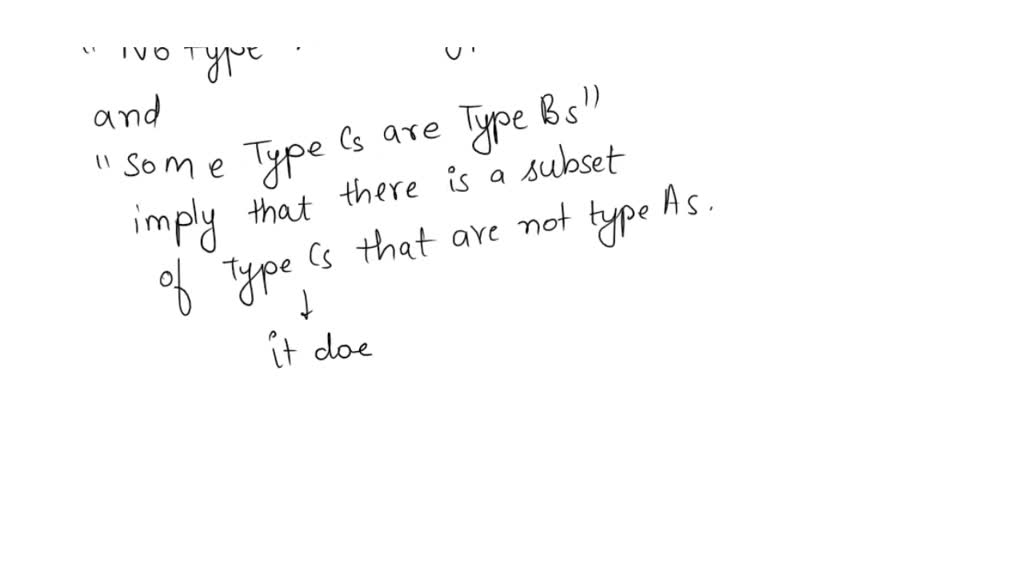 " No Type
and
"Some Type Cs are Type Bs"
imply that there is a subset
of Type Cs that are not type As.
↓
it doe